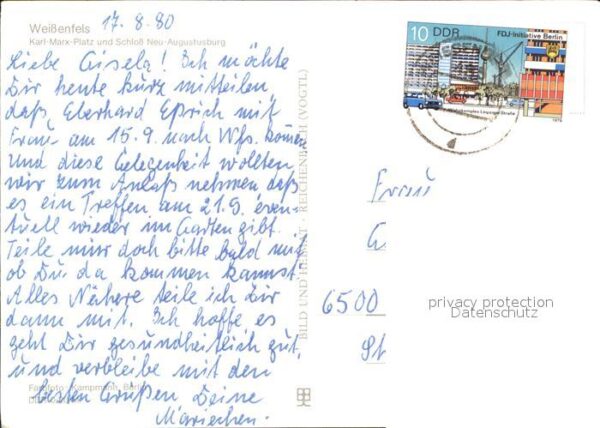 Weißenfels
17.8.80
Karl-Marx-Platz und Schloß Neu-Augustusburg
Liebe Gisela! Ich möchte
Dir heute kurz mitteilen
daß, Eberhard mit
Frau am 15.9. nach Wfs. komen
Und diese Gelegenheit wollten
wir zum Anlaß nehmen daß
es ein Treffen am 21.9. even-
tuell wieder im Garten gibt.
Teile mir doch bitte bald mit
ob Du da kommen kannst.
Alles Nähere teile ich Dir
dann mit. Ich hoffe es
geht Dir gesundheitlich gut,
und verbleibe mit den
besten Grüßen Deine
Mariechen.
Kampmann, Berlin
BILD UND HEIMAT · REICHENBACH (VOGTL)
10 DDR
FDJ-Initiative Berlin
Leipziger Straße
1979
Frau
G.
6500
privacy protection
Datenschutz